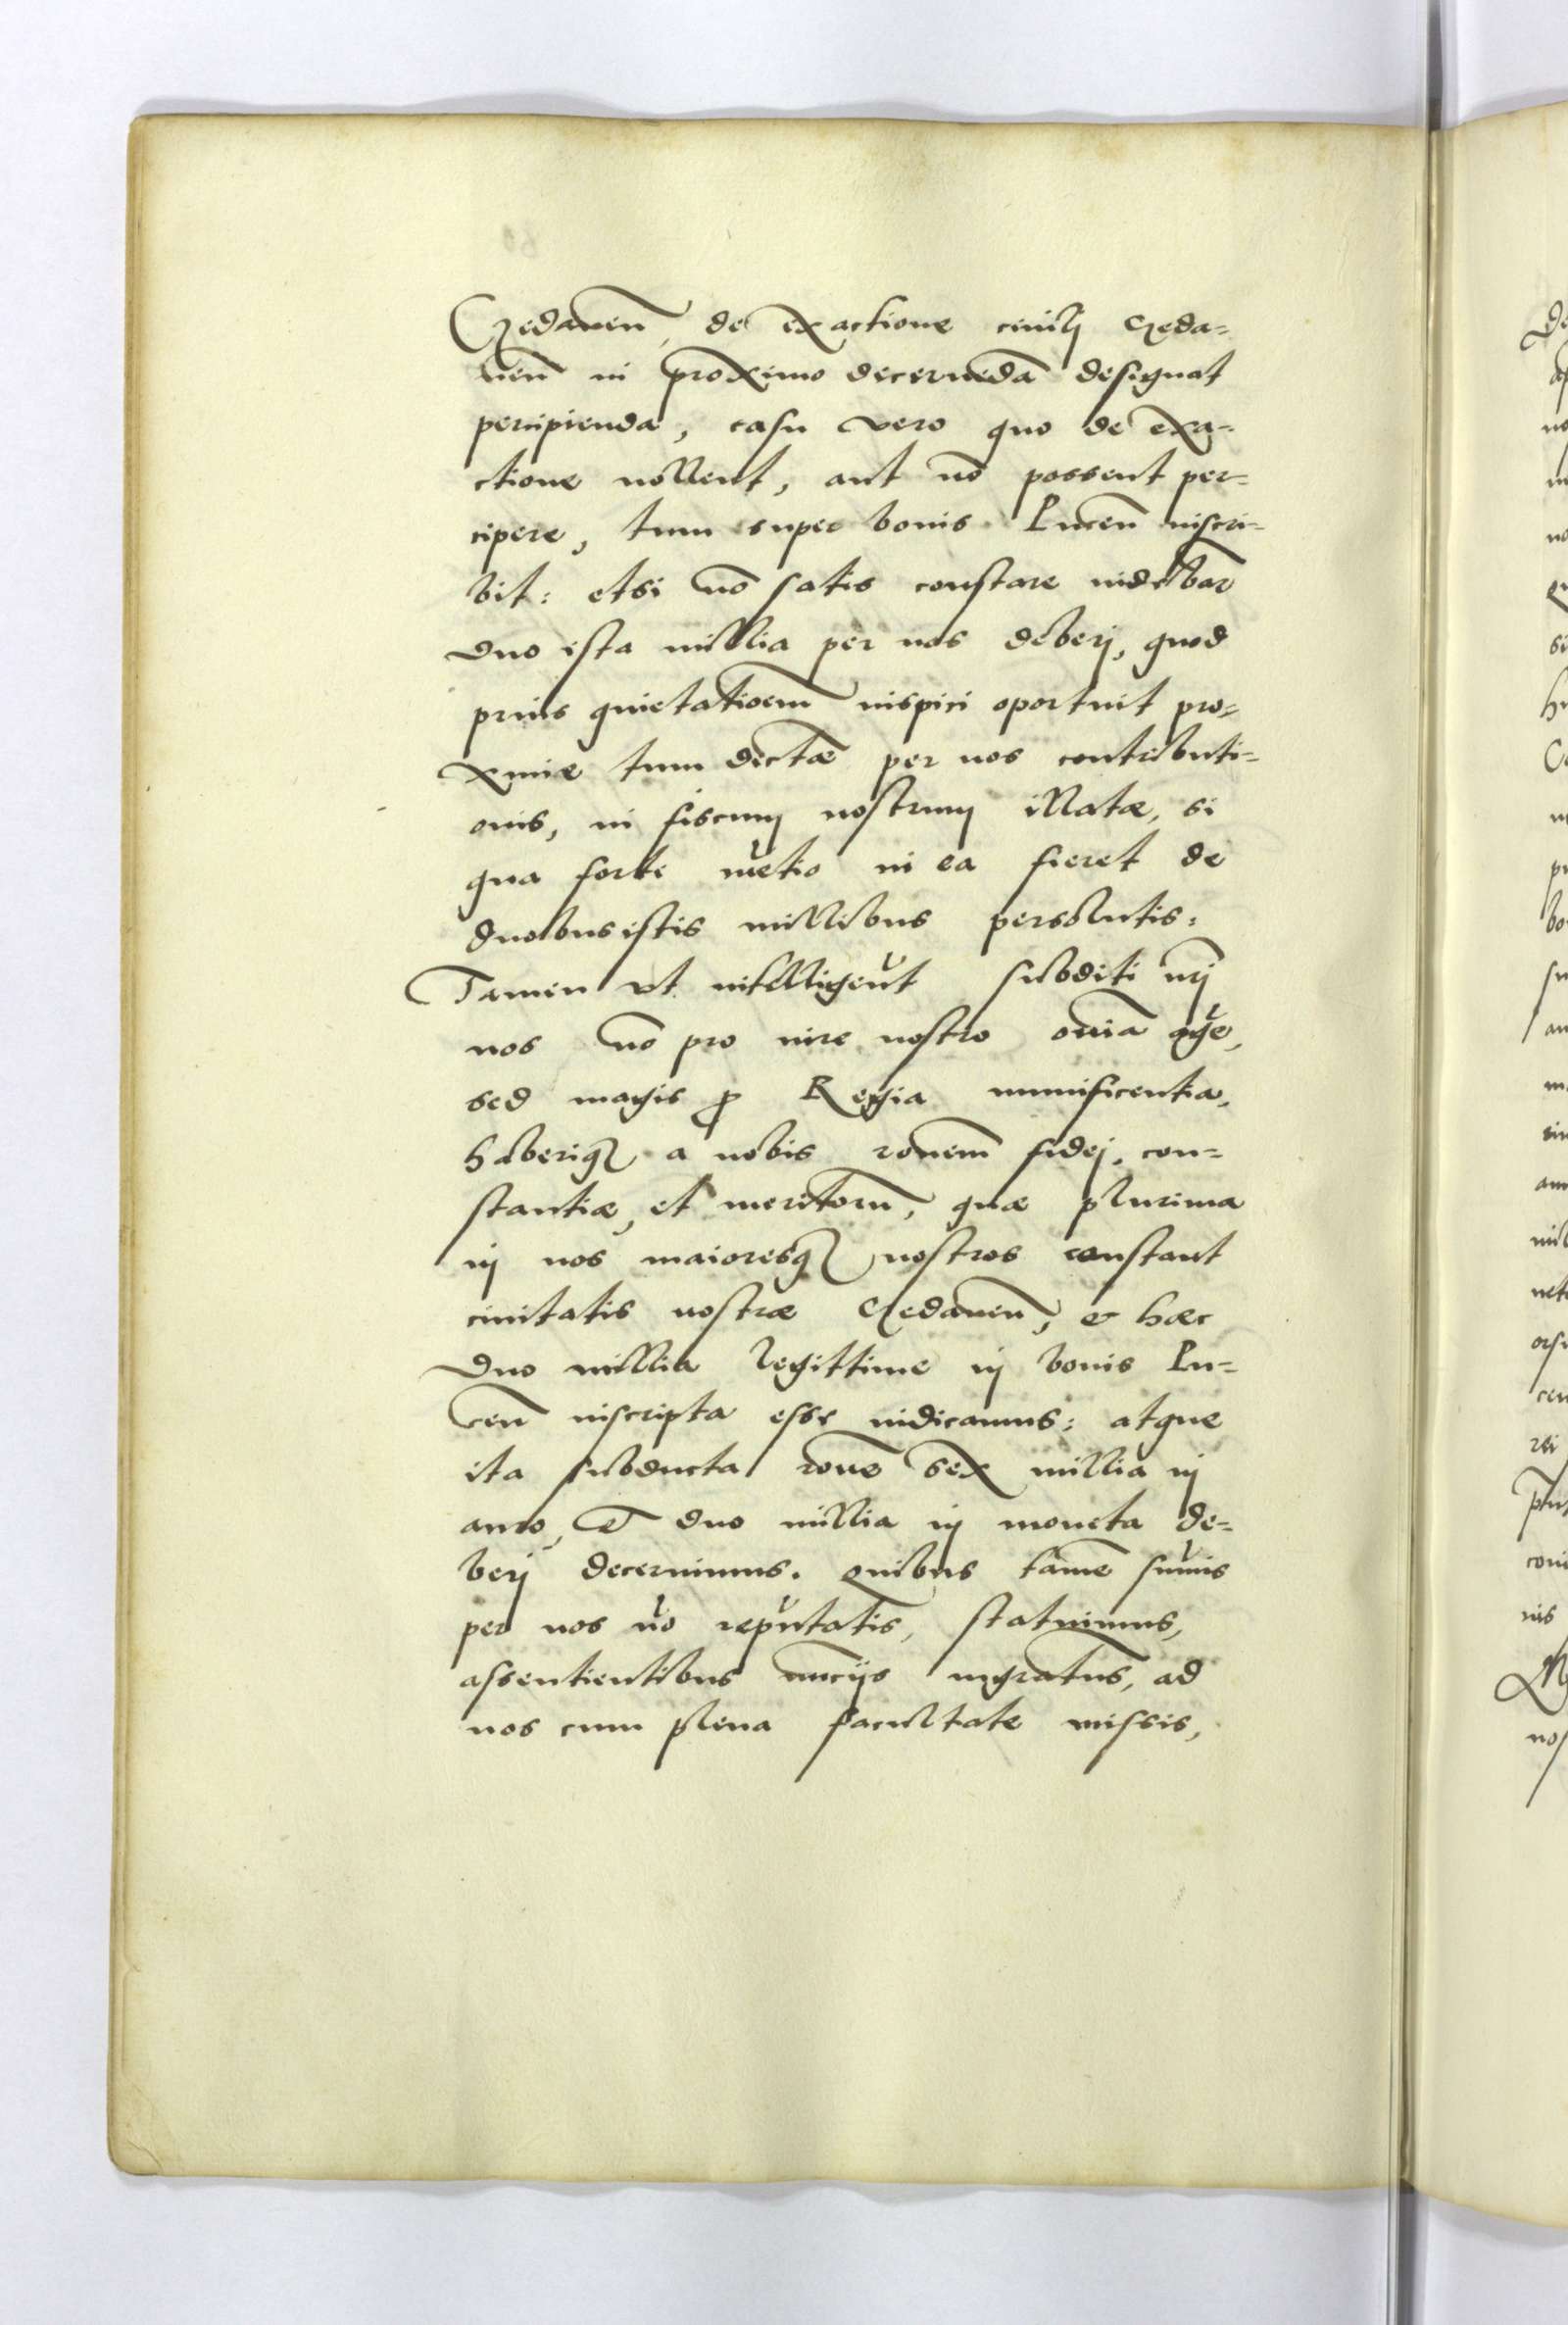 Gedanen̄, de exactione ciuilj Geda-
nen̄ in proximo decernēda designat
percipienda, casu vero quo de exa-
ctione nollent, aut nō possent per-
cipere, tum super bonis Pucen̄ inscri-
bit: etsi nō satis constare videbar̄
duo ista millia per nos deberj, quod
prius quietatioem̄ inspici oportuit pro-
ximæ tum dectæ per nos contributi-
onis, in fiscum nostrum illatæ, si
qua forte mētio in ea fieret de
duobus istis millibus persolutis:
Tamen vt intelligāt subditi nr̄j
nos nō pro iure nostro om̄ia agē,
sed magis ꝓ Regia munificentia,
haberiqꝫ a nobis ronem̄ fidej, con-
stantiæ, et meritoru̅, quæ plurima
in nos maioresqꝫ nostros constant
ciuitatis nostræ Gedanen̄, & hæc
duo millia legittime in bonis Pu-
cen̄ inscripta esse iudicamus: atque
ita subducta ronē sex millia in
auro, et duo millia in moneta de-
berj decernimus. quibus tamē sūmis
per nos nō reputatis, statuimus,
assentientibus nunciis ingratus, ad
nos cum plena facultate missis,